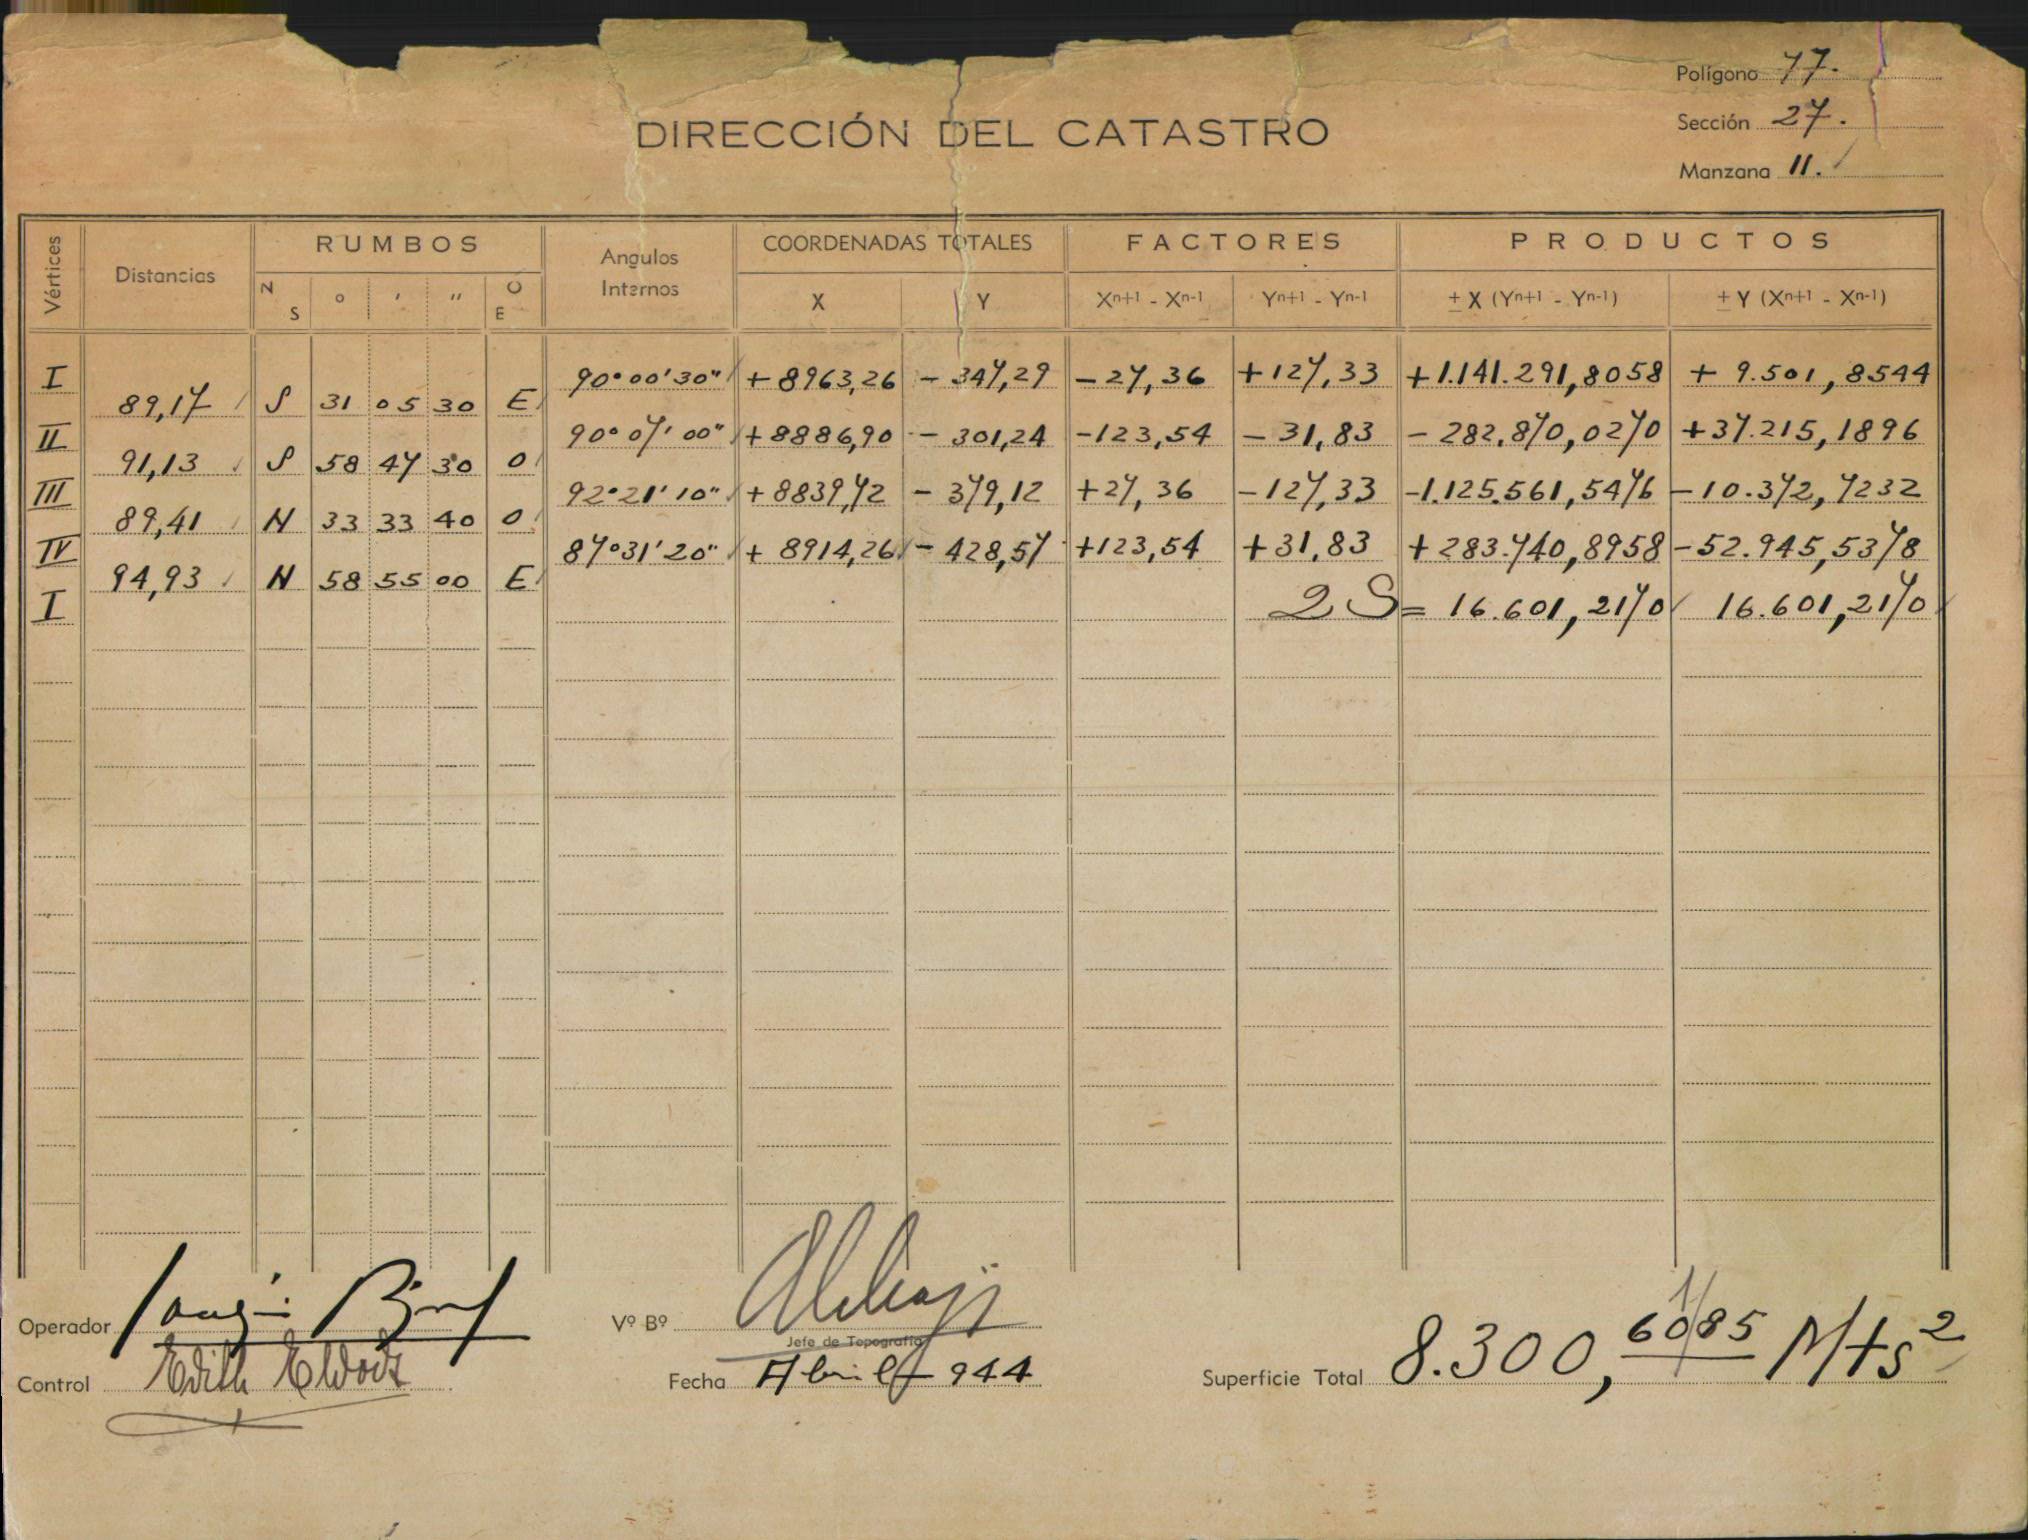 Polígono 77.
DIRECCIÓN DEL CATASTRO
Sección 27.
Manzana 11.
Vértices Distancias RUMBOS Angulos Internos COORDENADAS TOTALES FACTORES PRODUCTOS
N S ° ' " O E X Y Xn+1 - Xn-1 Yn+1 - Yn-1 ± X (Yn+1 - Yn-1) ± Y (Xn+1 - Xn-1)
I 90°00'30" +8963,26 - 347,29 -27,36 +127,33 +1.141.291,8958 + 9.501,8544
89,17 S 31 05 30 E
II 90°07'00" +8886,90 - 301,24 -123,54 - 31,83 - 282.870,0270 +37.215,1896
91,13 S 58 47 30 O
III 92°21'10" +8839,72 - 379,12 +27,36 -127,33 -1.125.561,5476 -10.372,7232
89,41 N 33 33 40 O
IV 87°31'20" + 8914,26 - 428,57 +123,54 +31,83 +283.740,8958 -52.945,5378
94,93 N 58 55 00 E
I 2S= 16.601,2170 16.601,2170
Operador
Vº Bº
Jefe de Topografía
Control Edith
Fecha Abril 944
Superficie Total 8.300,6085 Mts2